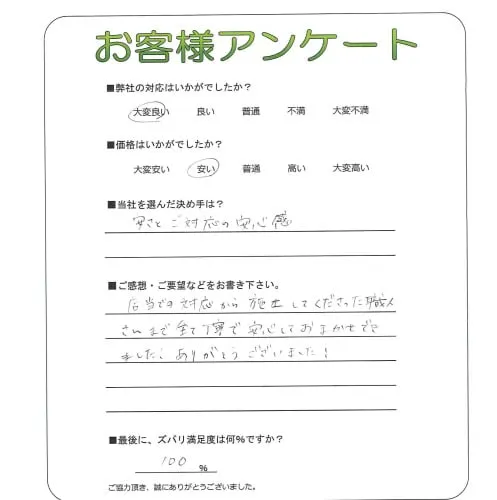 お客様アンケート
■弊社の対応はいかがでしたか？
大変良い 良い 普通 不満 大変不満
■価格はいかがでしたか？
大変安い 安い 普通 高い 大変高い
■当社を選んだ決め手は？
安さと ご対応の安心感
■ご感想・ご要望などをお書き下さい。
担当です対応から 施工してくださった職人
さんまで全て丁寧で安心しておまかせでき
ました！ありがとうございました！
■最後に、ズバリ満足度は何％ですか？
100 ％
ご協力頂き、誠にありがとうございました。